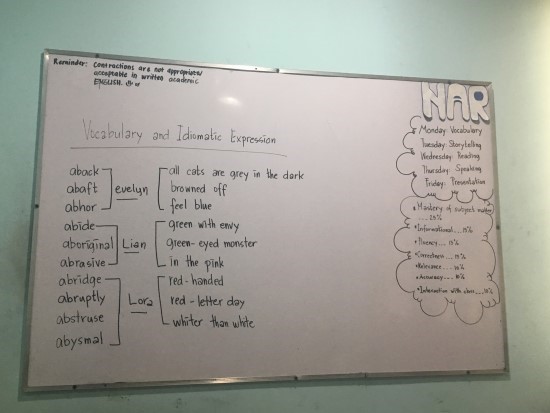 Reminder: Contractions are not appropriate/
acceptable in written academic
ENGLISH.
Vocabulary and Idiomatic Expression
aback
abaft
abhor
evelyn
all cats are grey in the dark
browned off
feel blue
abide
aboriginal
abrasive
Lian
green with envy
green-eyed monster
in the pink
abridge
abruptly
abstruse
abysmal
Lora
red-handed
red-letter day
whiter than white
NAR
Monday: Vocabulary
Tuesday: Storytelling
Wednesday: Reading
Thursday: Speaking
Friday: Presentation
• Mastery of subject matter
.... 25%
• Informational... 15%
• Fluency... 15%
• Correctness... 15%
• Relevance... 10%
• Accuracy... 10%
• Interaction with ... 10%